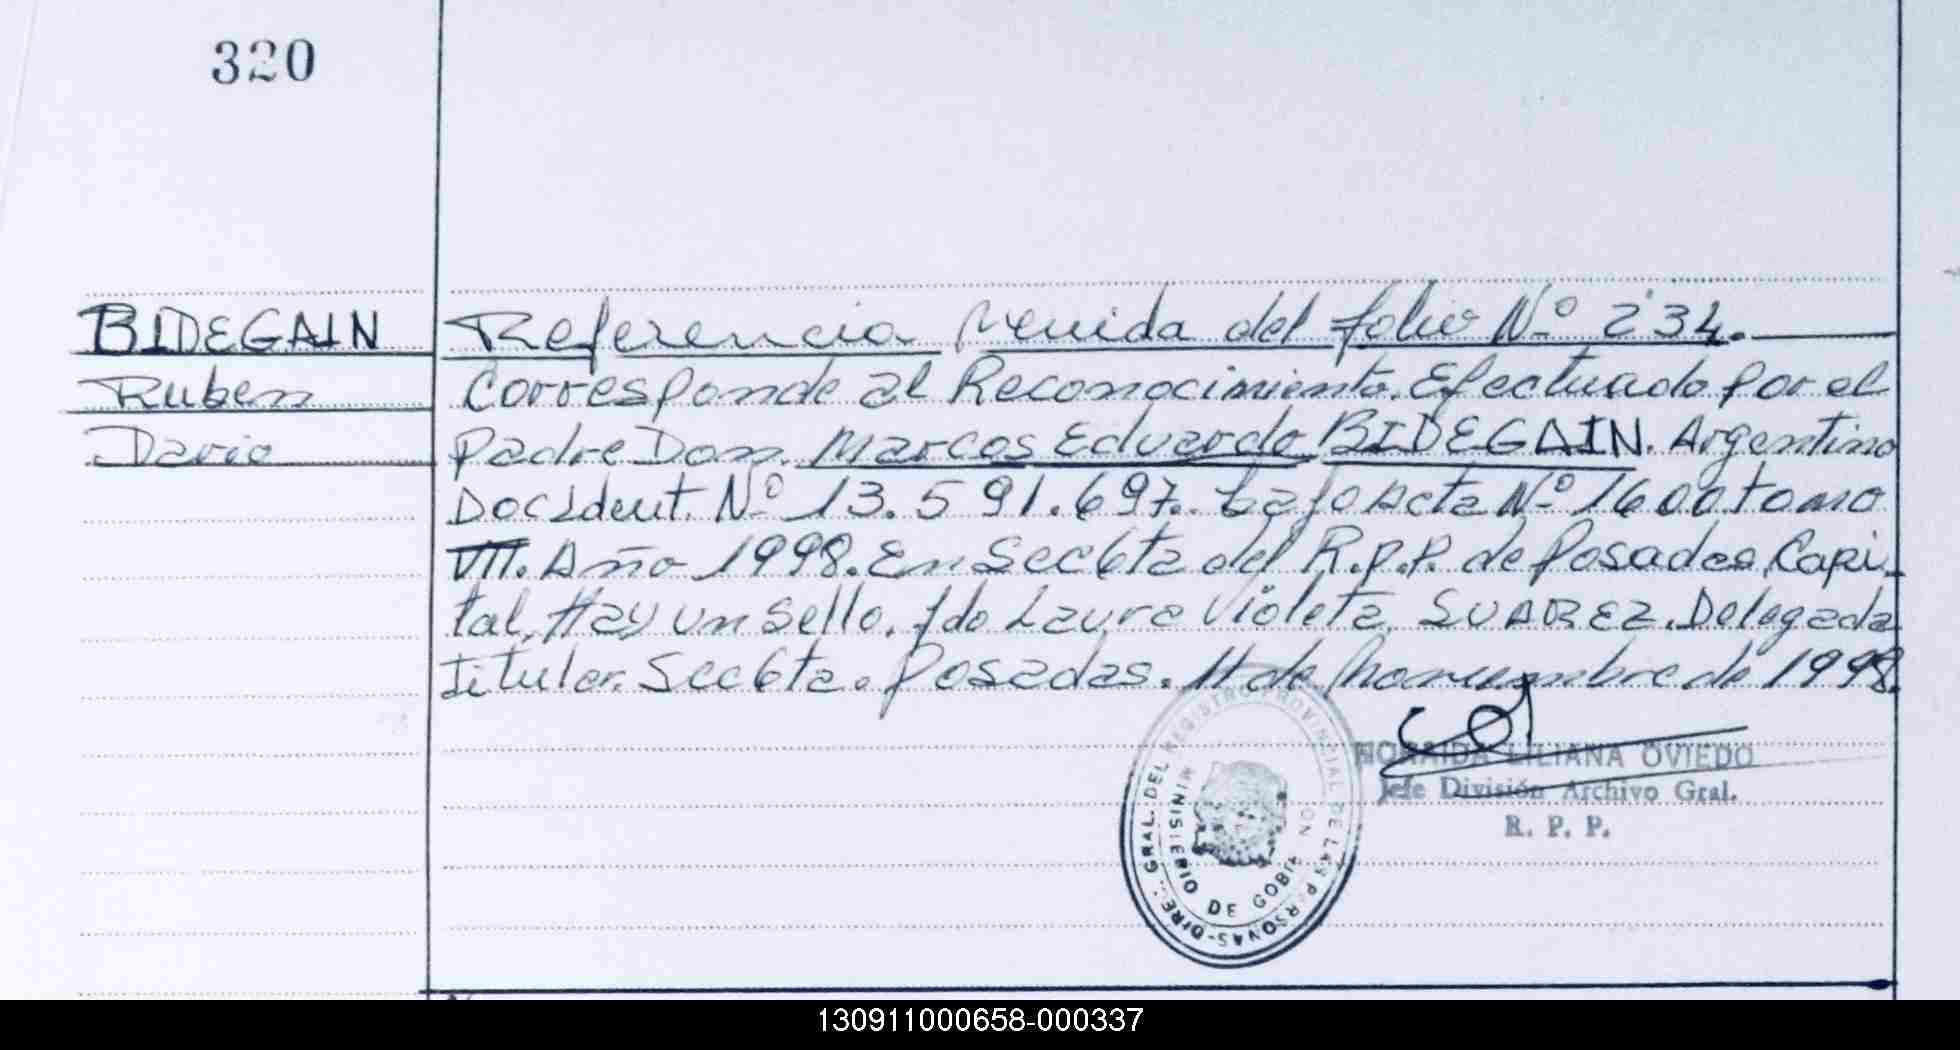 320
BIDEGAIN
Ruben
Dario
Referencia venida del folio Nº 234.
Corresponde al Reconocimiento. Efectuado por el
padre Don. Marcos Eduardo BIDEGAIN. Argentino
Doc Ident. Nº 13.591.697. bajo Acta Nº 1600 tomo
VII. Año 1998. En Secc 6ta del R.P.P. de Posadas Capi_
tal, Hay un sello. fdo Laura Violeta SUAREZ. Delegada
Titular. Secc 6ta. Posadas. 11 de Noviembre de 1998.
LILIANA OVIEDO
Jefe División Archivo Gral.
R. P. P.
DIREC. GRAL. DEL REGISTRO PROVINCIAL DE LAS PERSONAS-
MINISTERIO DE GOBIERNO
130911000658-000337